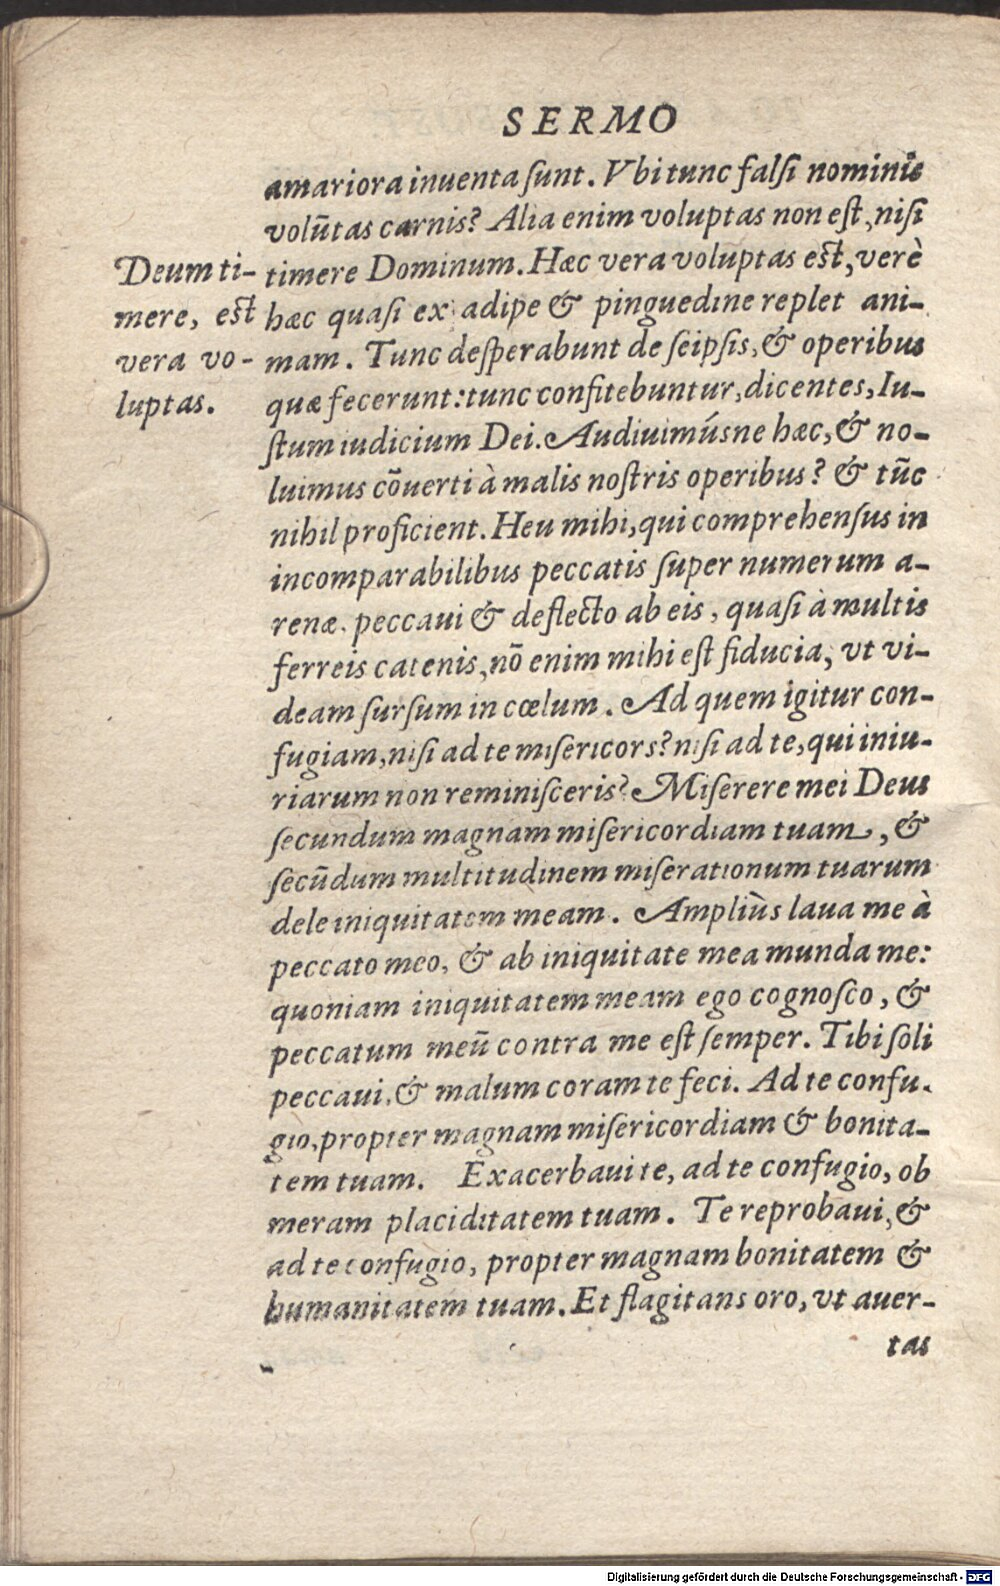 SERMO
amariora inuenta sunt. Vbi tunc falsi nominis
volūtas carnis? Alia enim voluptas non est, nisi
timere Dominum. Hæc vera voluptas est, verè
hæc quasi ex adipe & pinguedine replet ani-
mam. Tunc desperabunt de seipsis, & operibus
quæ fecerunt: tunc confitebuntur, dicentes, Iu-
stum iudicium Dei. Audiuimúsne hæc, & no-
luimus cōuerti à malis nostris operibus? & tūc
nihil proficient. Heu mihi, qui comprehensus in
incomparabilibus peccatis super numerum a-
renæ. peccaui & deflecto ab eis, quasi à multis
ferreis catenis, nō enim mihi est fiducia, vt vi-
deam sursum in cœlum. Ad quem igitur con-
fugiam, nisi ad te misericors? nisi ad te, qui iniu-
riarum non reminisceris? Miserere mei Deus
secundum magnam misericordiam tuam, &
secūdum multitudinem miserationum tuarum
dele iniquitatem meam. Ampliùs laua me à
peccato meo, & ab iniquitate mea munda me:
quoniam iniquitatem meam ego cognosco, &
peccatum meū contra me est semper. Tibi soli
peccaui, & malum coram te feci. Ad te confu-
gio, propter magnam misericordiam & bonita-
tem tuam. Exacerbaui te, ad te confugio, ob
meram placiditatem tuam. Te reprobaui, &
ad te confugio, propter magnam bonitatem &
humanitatem tuam. Et flagitans oro, vt auer-
tas
Deum ti-
mere, est
vera vo-
luptas.
Digitalisierung gefördert durch die Deutsche Forschungsgemeinschaft - DFG